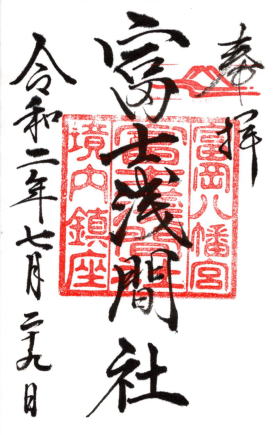 奉拝
富岡八幡宮
富士浅間社
境内鎮座
富士浅間社
令和二年七月二十九日